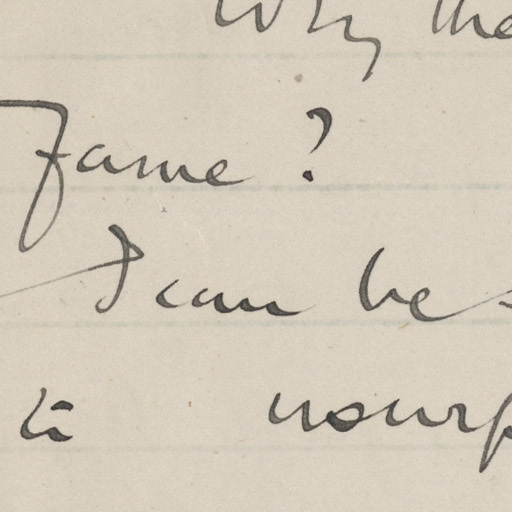 Why the
Fame?
I can be
to usurp